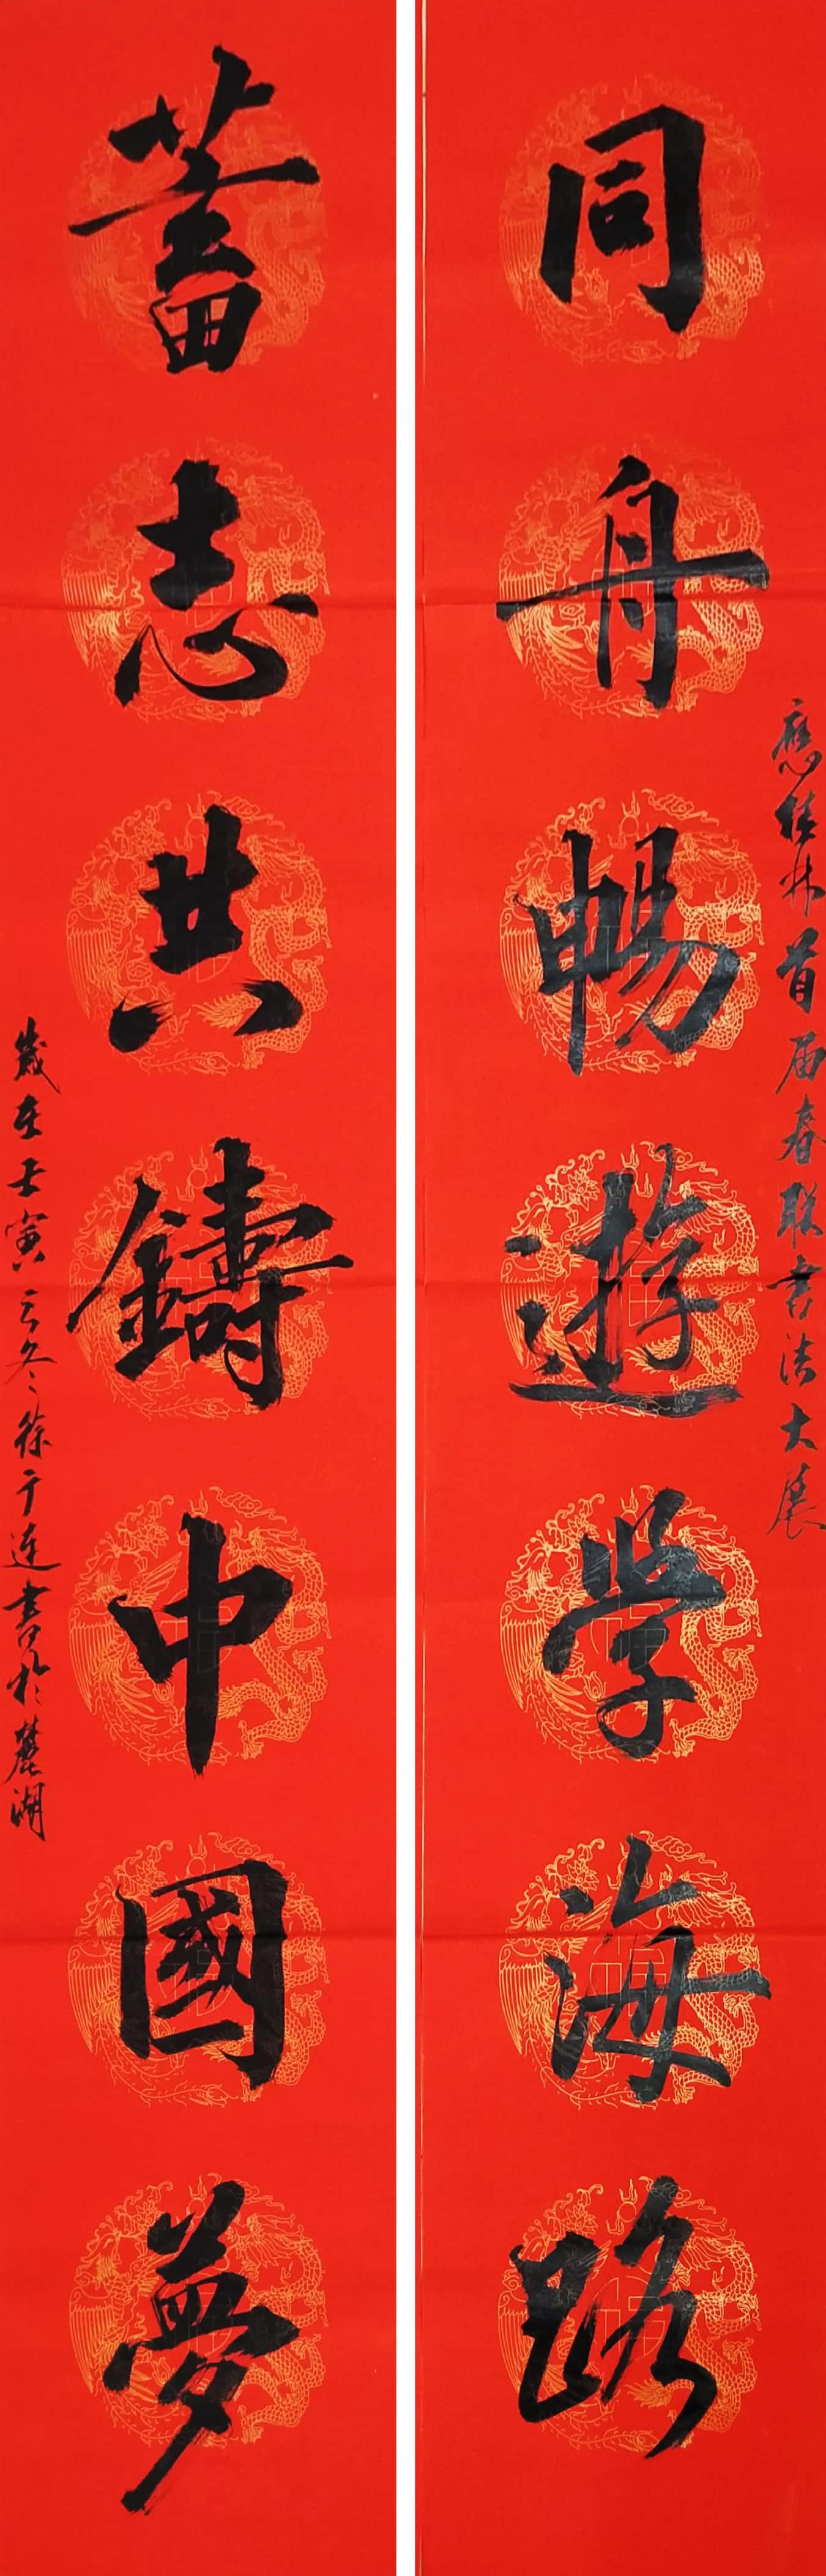 應桂林首届春联書法大展
同舟暢遊学海路
蓄志共鑄中國夢
歲在壬寅之冬徐于连書於麓湖